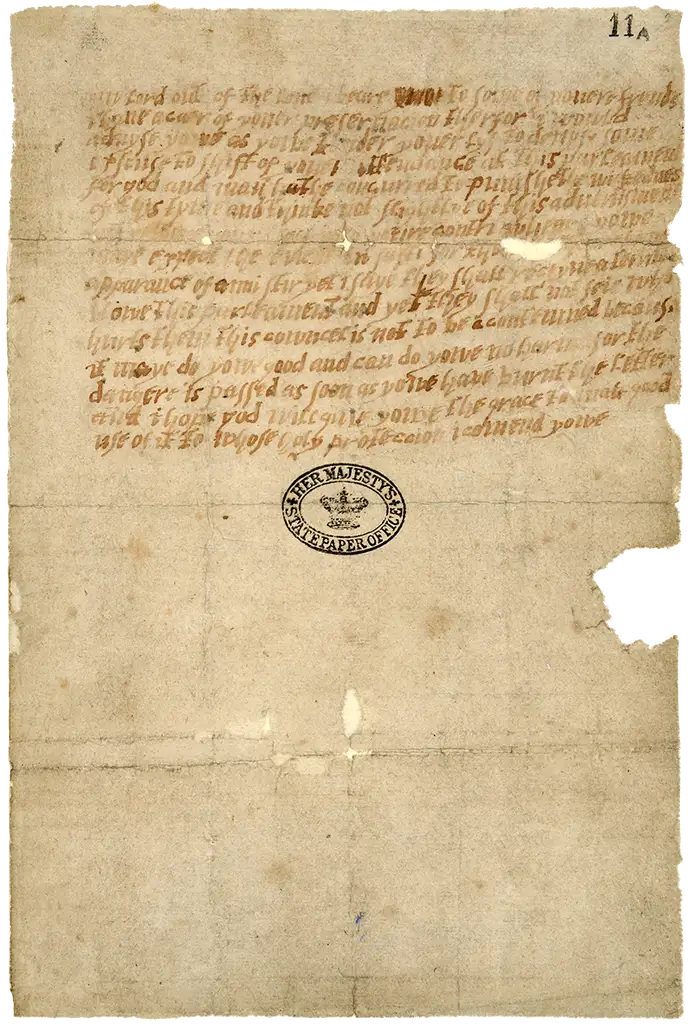 11A
lord out of the love i beare to some of youere frends
i have a caer of youer preservacion therfor i would
advyse yowe as yowe tender youer lyf to devise some
excuse to shift of youer attendance at this parleament
for god and man hathe concurred to punishe the wickednes
of this tyme and thinke not slightlye of this advertisment
contri wheare yowe
maye expect the event in safti for
apparance of anni stir yet i saye they shall receyve a terrible
blowe this parleament and yet they shall not seie who
hurts them this cowncel is not to be contemned because
it maye do yowe good and can do yowe no harme for the
dangere is passed as soon as yowe have burnt the letter
and i hope god will give yowe the grace to mak good
use of it to whose holy proteccion i comend yowe
HER MAJESTY'S
STATE PAPER OFFICE